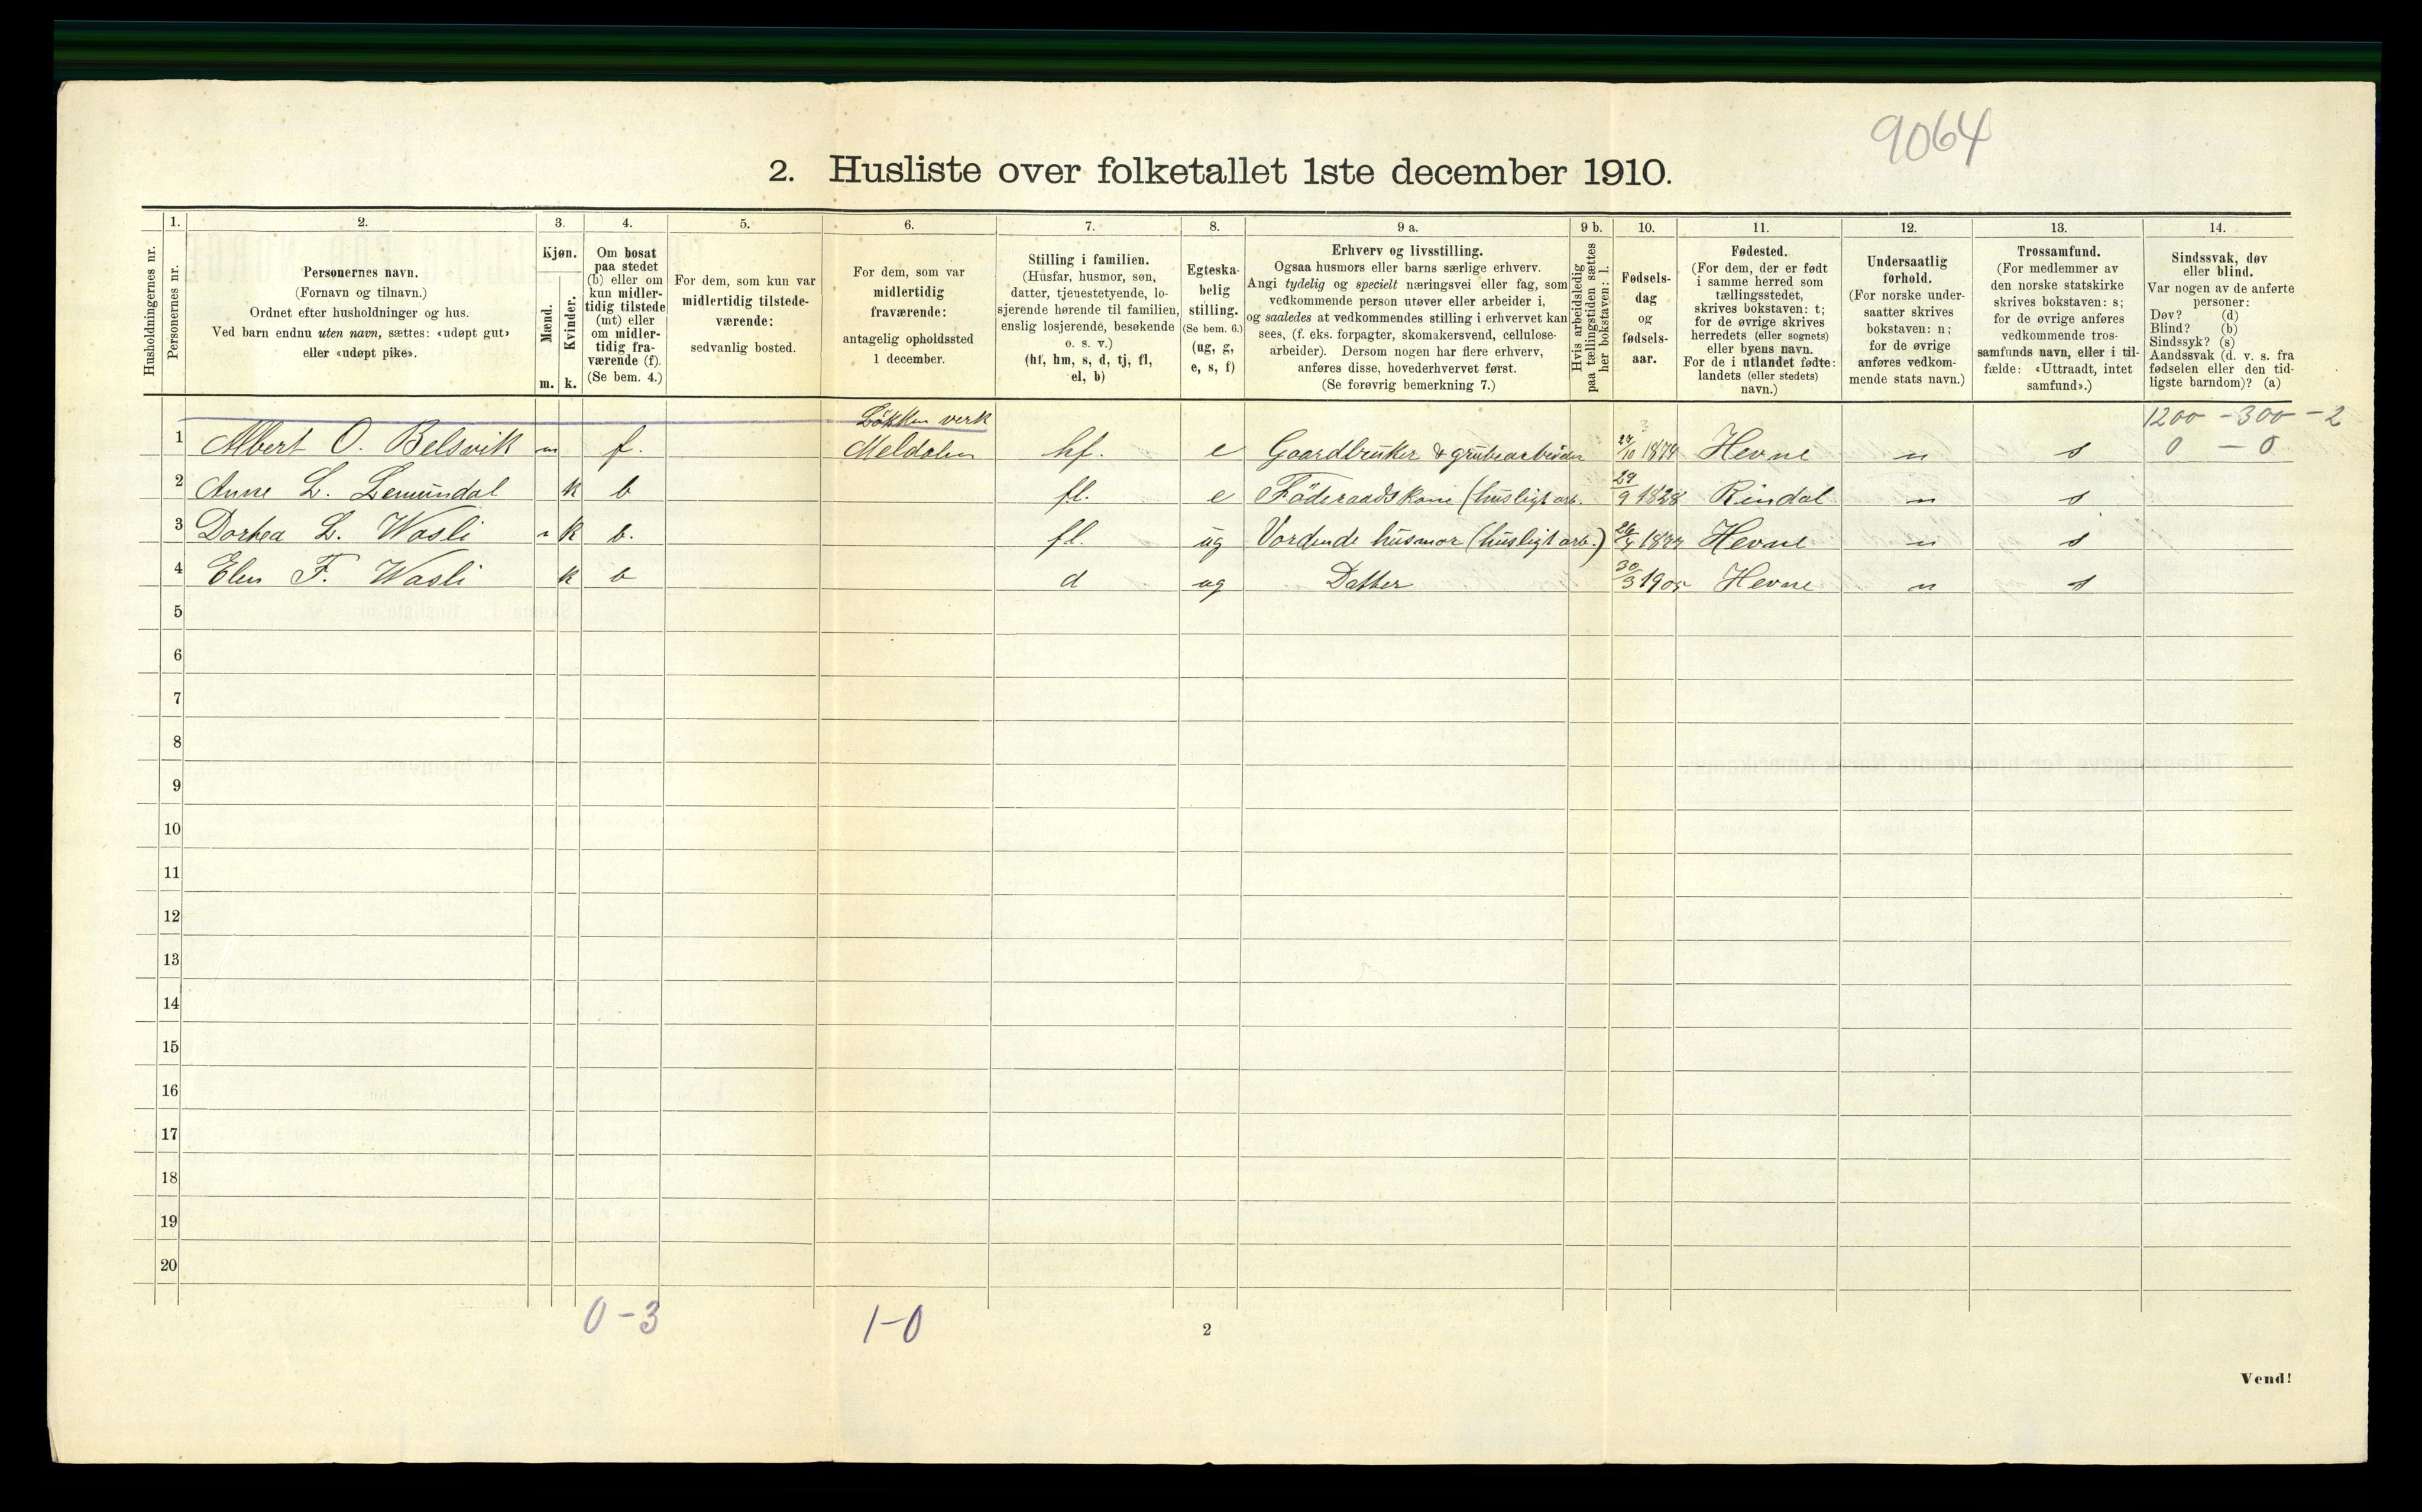 9064
2. Husliste over folketallet 1ste december 1910.
Husholdningernes nr.
1.
Personernes nr.
2.
Personernes navn.
(Fornavn og tilnavn.)
Ordnet efter husholdninger og hus.
Ved barn endnu uten navn, sættes: «udøpt gut»
eller «udøpt pike».
3.
Kjøn.
Mænd.
Kvinder.
m. k.
4.
Om bosat
paa stedet
(b) eller om
kun midler-
tidig tilstede
(mt) eller
om midler-
tidig fra-
værende (f).
(Se bem. 4.)
5.
For dem, som kun var
midlertidig tilstede-
værende:
sedvanlig bosted.
6.
For dem, som var
midlertidig
fraværende:
antagelig opholdssted
1 december.
7.
Stilling i familien.
(Husfar, husmor, søn,
datter, tjenestetyende, lo-
sjerende hørende til familien,
enslig losjerende, besøkende
o. s. v.)
(hf, hm, s, d, tj, fl,
el, b)
8.
Egteska-
belig
stilling.
(Se bem. 6.)
(ug, g,
e, s, f)
9 a.
Erhverv og livsstilling.
Ogsaa husmors eller barns særlige erhverv.
Angi tydelig og specielt næringsvei eller fag, som
vedkommende person utøver eller arbeider i,
og saaledes at vedkommendes stilling i erhvervet kan
sees, (f. eks. forpagter, skomakersvend, cellulose-
arbeider). Dersom nogen har flere erhverv,
anføres disse, hovederhvervet først.
(Se forøvrig bemerkning 7.)
9 b.
Hvis arbeidsledig
paa tællingstiden sættes
her bokstaven: l.
10.
Fødsels-
dag
og
fødsels-
aar.
11.
Fødested.
(For dem, der er født
i samme herred som
tællingsstedet,
skrives bokstaven: t;
for de øvrige skrives
herredets (eller sognets)
eller byens navn.
For de i utlandet fødte:
landets (eller stedets)
navn.)
12.
Undersaatlig
forhold.
(For norske under-
saatter skrives
bokstaven: n;
for de øvrige
anføres vedkom-
mende stats navn.)
13.
Trossamfund.
(For medlemmer av
den norske statskirke
skrives bokstaven: s;
for de øvrige anføres
vedkommende tros-
samfunds navn, eller i til-
fælde: «Uttraadt, intet
samfund».)
14.
Sindssvak, døv
eller blind.
Var nogen av de anførte
personer:
Døv? (d)
Blind? (b)
Sindssyk? (s)
Aandssvak (d. v. s. fra
fødselen eller den tid-
ligste barndom)? (a)
Løkken verk 1200 - 300 - 2
1 Albert O. Belsvik m f. Meldalen hf. e Gaardbruker & grubearbeider 27/10 1874 Hevne n s 0 - 0
2 Anne L. Lemundal k b fl. e Föderaadskone (husligt arb. 29/9 1828 Rindal n s
3 Dorthea L. Wasli k b. fl. ug Vordende husmor (husligt arb.) Hevne n s
4 Elen F. Wasli k b d ug Datter 30/3 1905 Hevne n s
5
6
7
8
9
10
11
12
13
14
15
16
17
18
19
20
0-3 1-0
2
Vend!